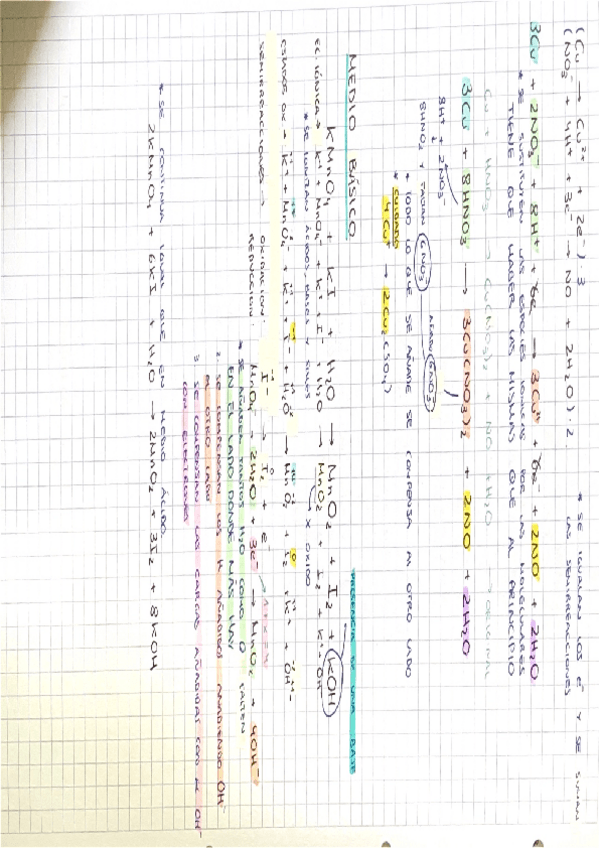 (Cu → Cu²⁺ + 2e⁻)·3 * SE IGUALAN LOS e⁻ Y SE SUMAN
(NO₃⁻ + 4H⁺ + 3e⁻ → NO + 2H₂O)·2 LAS SEMIRREACCIONES
3Cu + 2NO₃⁻ + 8H⁺ + 6e⁻ → 3Cu²⁺ + 6e⁻ + 2NO + 2H₂O
* SE SUSTITUYEN LAS ESPECIES IÓNICAS POR LAS MOLECULARES
TIENE QUE HABER LAS MISMAS QUE AL PRINCIPIO
Cu + HNO₃ → Cu(NO₃)₂ + NO + H₂O → ORIGINAL
3Cu + 8HNO₃ → 3Cu(NO₃)₂ + 2NO + 2H₂O
8H⁺ + 2NO₃⁻
8HNO₃ Y FALTAN 6NO₃ 6NO₃
* TODO LO QUE SE AÑADE SE COMPENSA AL OTRO LADO
* CUIDADO
4Cu⁺ → 2Cu₂(SO₄)
MEDIO BÁSICO PRESENCIA DE UNA BASE
KMnO₄ + KI + H₂O → MnO₂ + I₂ + KOH
EC IÓNICA → K⁺ + MnO₄⁻ + K⁺ + I⁻ + H₂O → MnO₂ + I₂ + K⁺ OH⁻
* SE IONIZAN ÁCIDOS, BASES Y SALES X OXIDO
ESTADOS OX → K⁺ + MnO₄⁻ + K⁺ + I⁻ + H₂O → MnO₂ + I₂ + K⁺ + OH⁻
SEMIRREACCIONES → OXIDACION: I⁻ → I₂ + e⁻
REDUCCION: MnO₄⁻ + 2H₂O + 3e⁻ → MnO₂ + 4OH⁻
* SE AÑADEN TANTOS H₂O COMO O FALTEN
EN EL LADO DONDE MÁS HAY
2. SE COMPENSAN LOS H AÑADIDOS AÑADIENDO OH⁻
AL OTRO LADO
3. SE COMPENSAN LAS CARGAS AÑADIDAS CON
CON ELECTRONES
* SE CONTINUA IGUAL QUE EN MEDIO ÁCIDO
2KMnO₄ + 6KI + H₂O → 2MnO₂ + 3I₂ + 8KOH